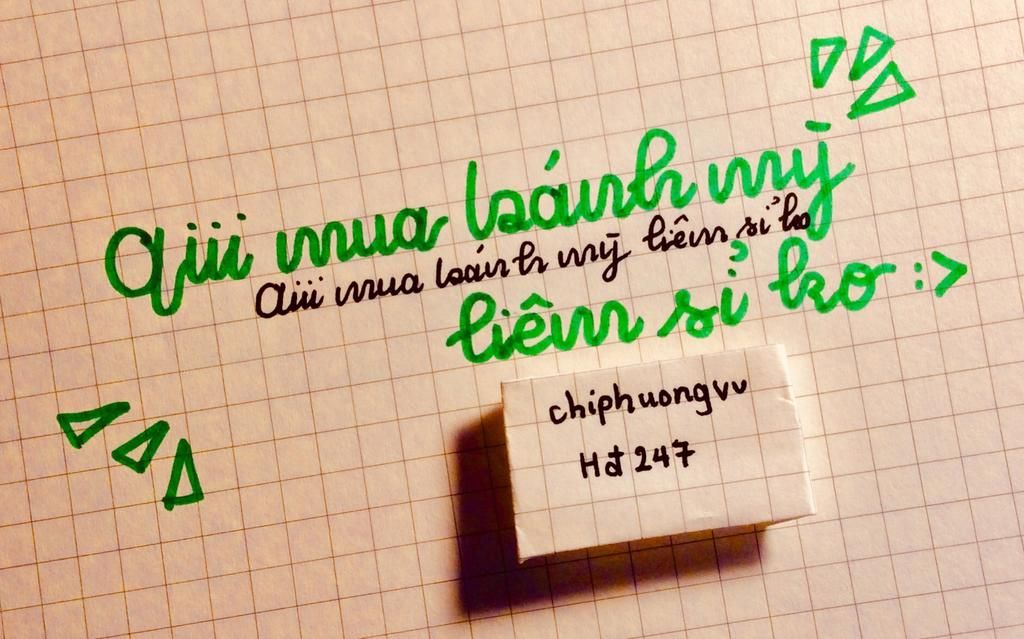 Qiii mua bánh mỳ
Qiii mua bánh mỳ liêm sỉ ko
liêm sỉ ko :>
chiphuongvv
Hđ 247